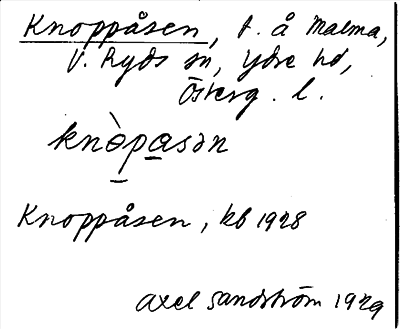 Knoppåsen, t. å Malma,
V. Ryds sn, Ydre hd,
Österg. l.
knòpasən
Knoppåsen, kb 1928
Axel Sandström 1929